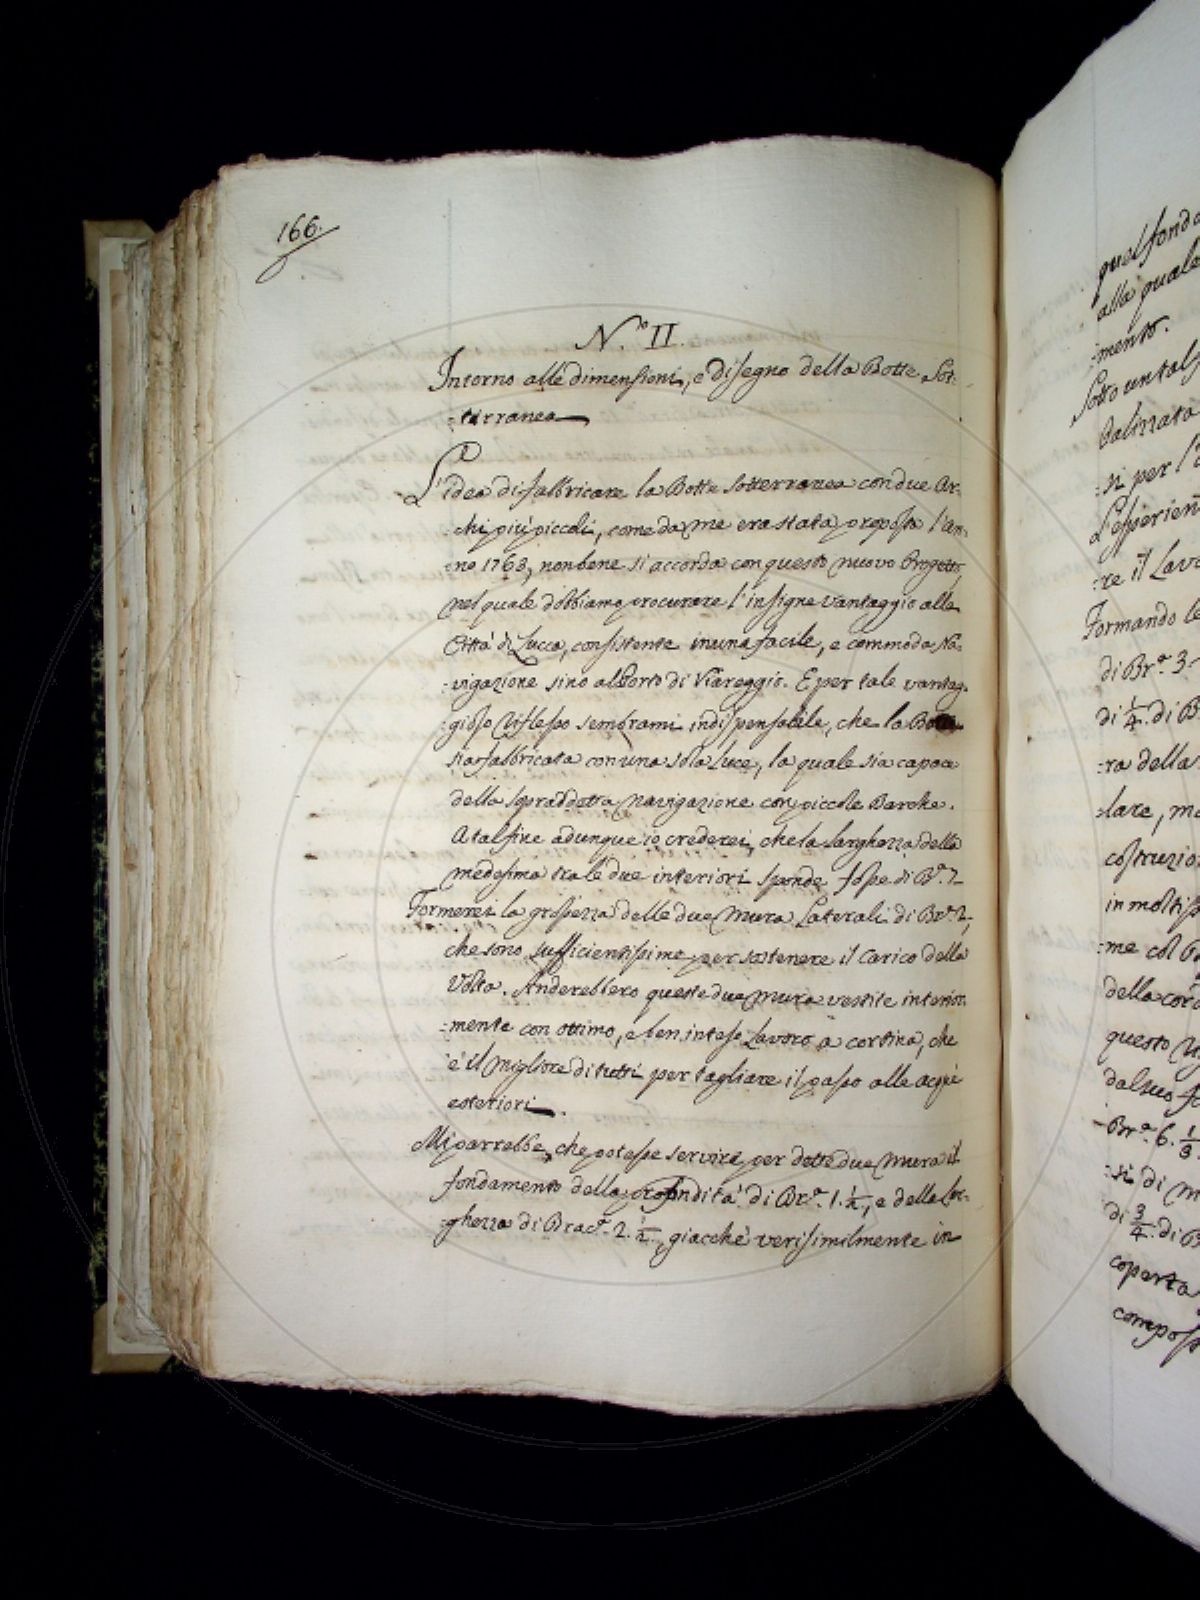 166.
N.º II.
Intorno alle dimensioni, e disegno della Botte Sot-
:terranea
L'idea di fabbricare la Botte sotterranea con due Ar-
:chi più piccoli, come da me era stata proposta l'an-
:no 1763, non bene si accorda con questo nuovo Progetto,
nel quale dobbiamo procurare l'insigne vantaggio alla
Città di Lucca, consistente in una facile, e commoda Na-
:vigazione sino al Porto di Viareggio. E per tale vantag-
:gioso riflesso sembrami indispensabile, che la Botte
sia fabbricata con una sola Luce, la quale sia capace
della sopraddetta navigazione con piccole Barche.
A tal fine adunque io crederei, che la larghezza della
medesima tra le due interiori sponde fosse di Br.ª 7
Formerei la grossezza delle due Mura Laterali di Br.ª 2,
che sono sufficientissime per sostenere il carico della
Volta. Anderebbero queste due Mura vestite interior-
:mente con ottimo, e ben inteso Lavoro a cortina, che
è il migliore di tutti per tagliare il passo alle acque
esteriori.
Mi parrebbe, che potesse servire per dette due Mura il
fondamento della profondità di Br.ª 1. ½, e della lar-
:ghezza di Brac.ª 2. ½, giacchè verisimilmente in
quel fondo
alla quale
:mento.
Sotto un tal
:si per l'
L'esperien
:re il Lavo
Formando le
di Br.ª 3.
di ¼ di B
:ra della
:lare, ma
costruzio
in moltiss
:me col
della cor
questo
dal suo fo
Br.ª 6. ⅓
:si di m
di ¾ di B
coperta
compos